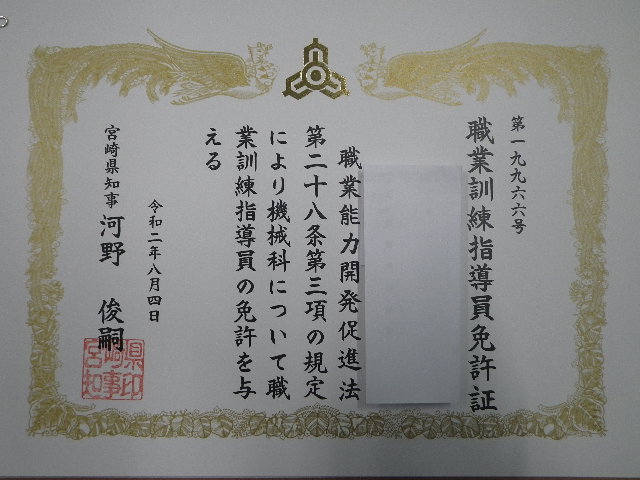 第一九九六六号
職業訓練指導員免許証
職業能力開発促進法
第二十八条第三項の規定
により機械科について職
業訓練指導員の免許を与
える
令和二年八月四日
宮崎県知事 河野 俊嗣
宮崎県知事印